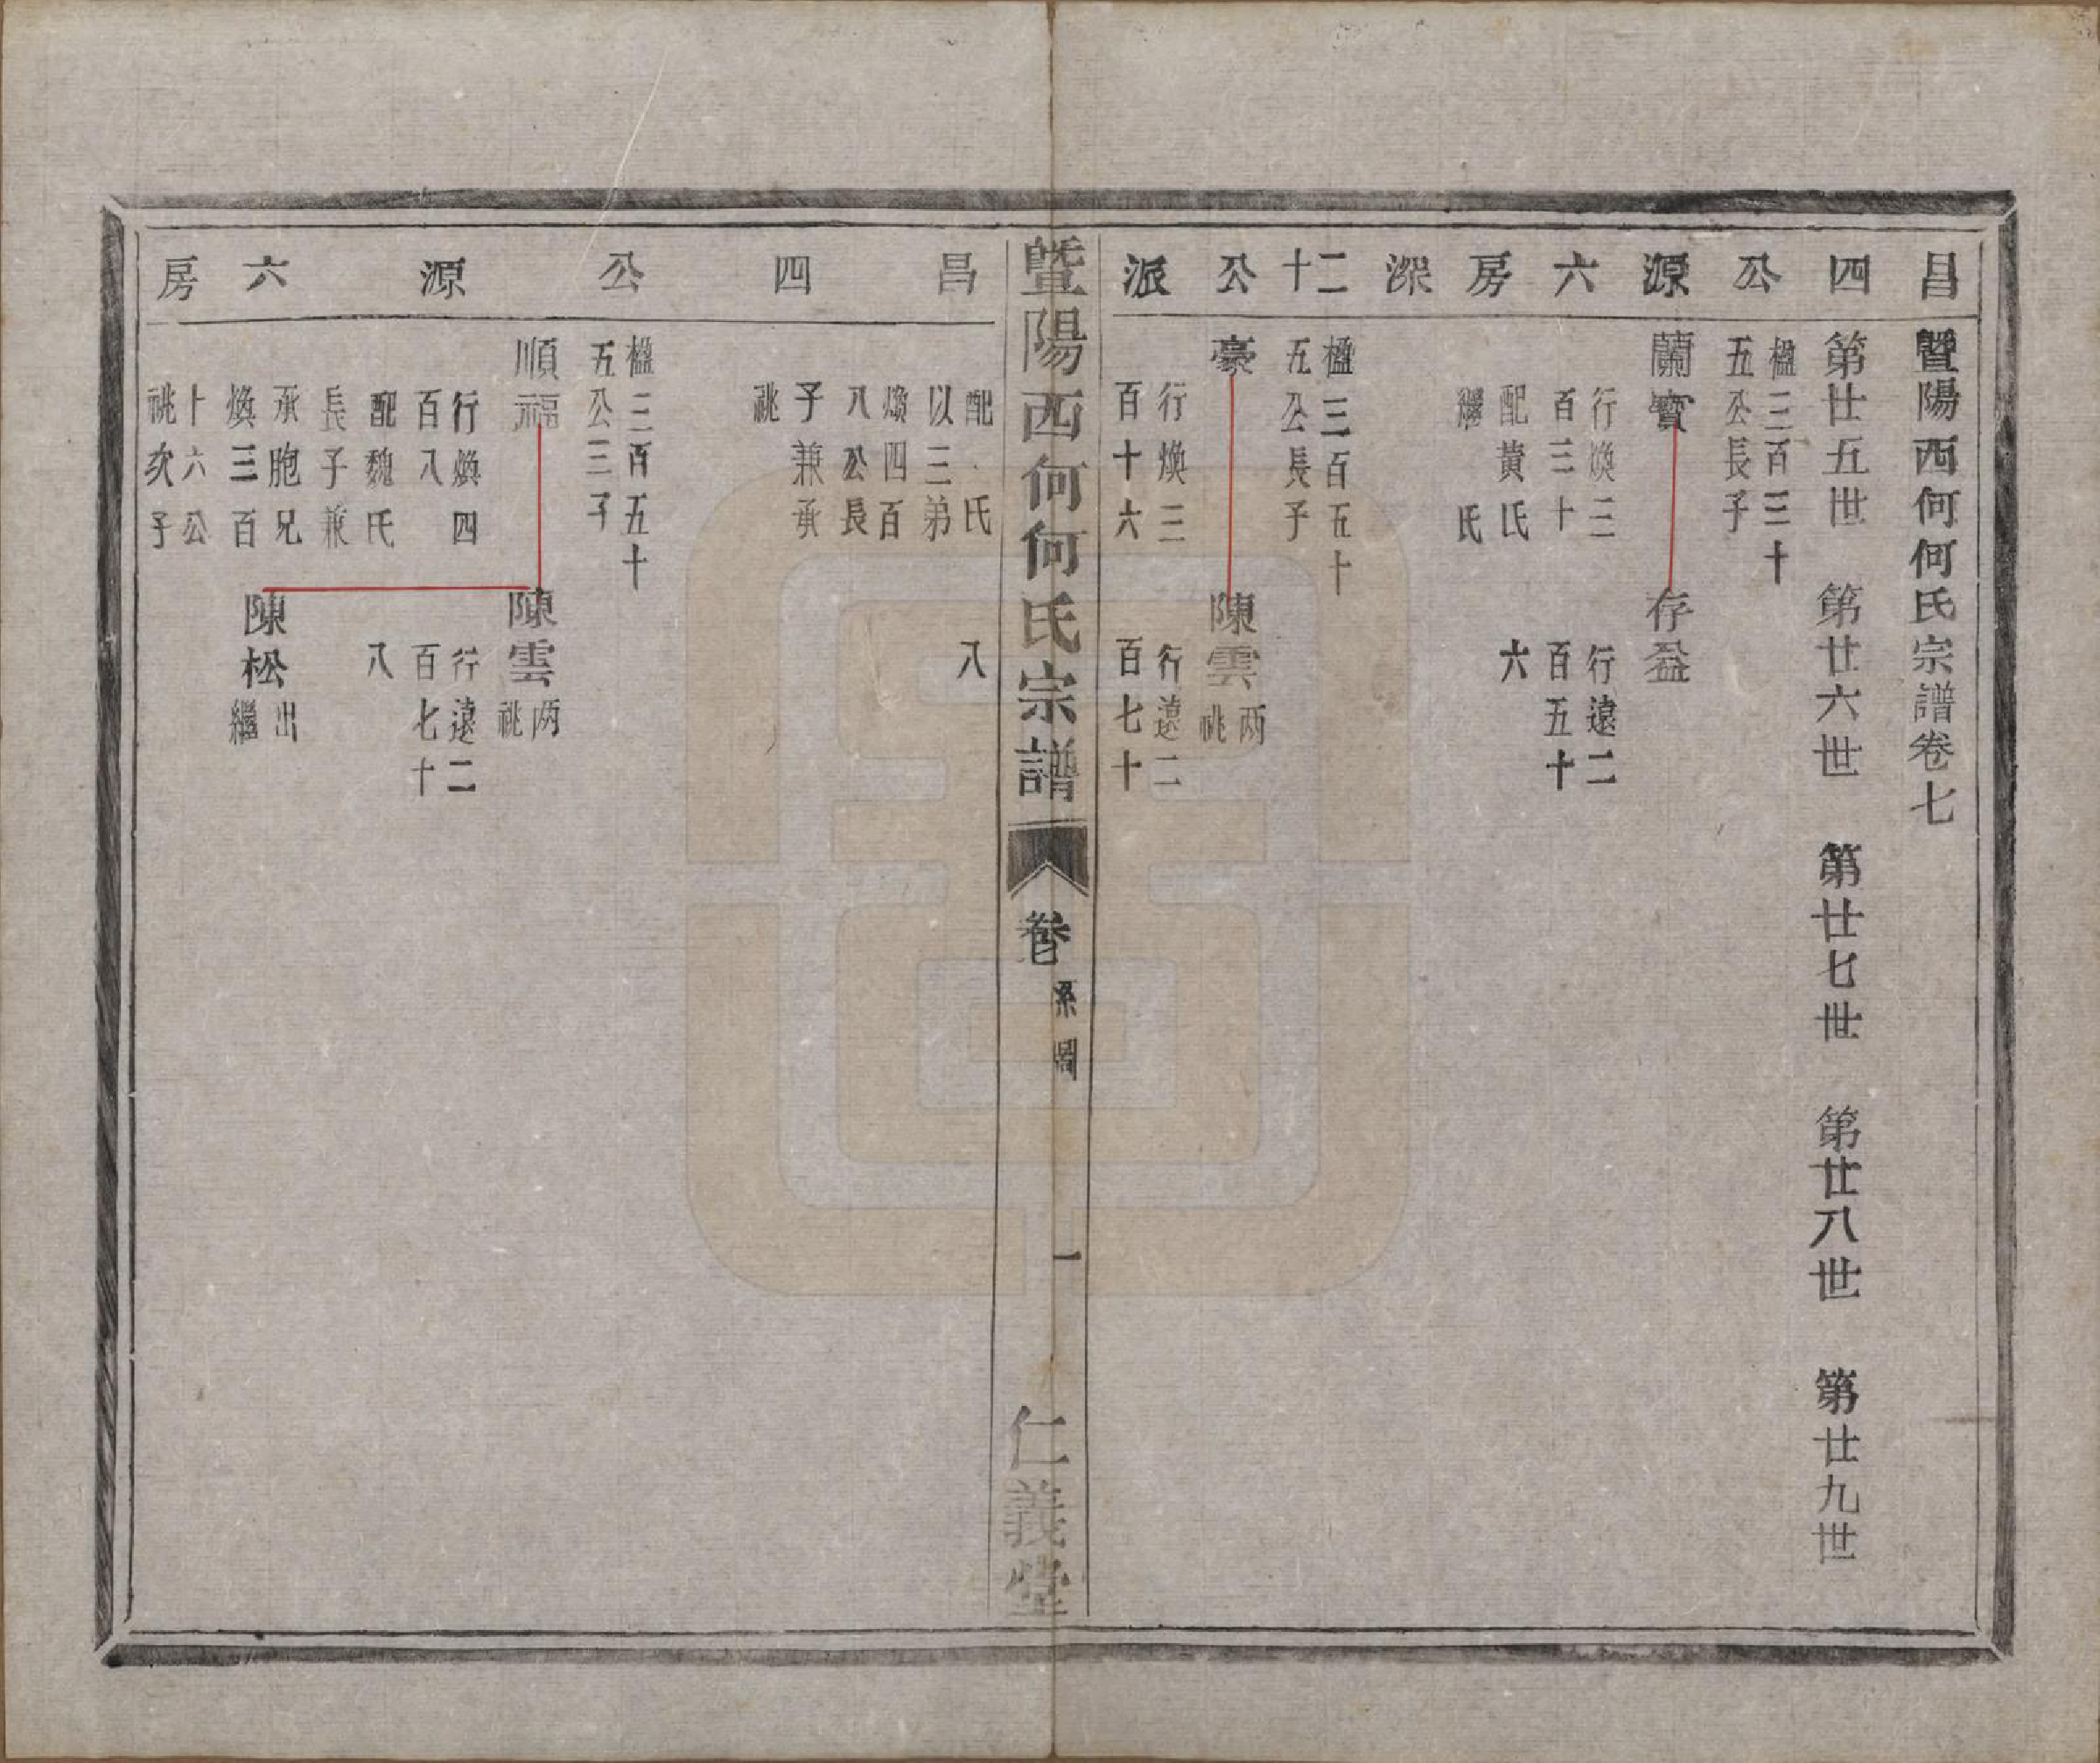 昌四公源六房深二十公派
暨陽西何何氏宗譜卷七
第廿五世　第廿六世　第廿七世　第廿八世　第廿九世
楹三百三十
五公長子
蘭寶　存益
行煥三　行遠二
百三十　百五十
配黃氏　六
繼　氏
楹三百五十
五公長子
豪　陳雲兩祧
行煥三　行遠二
百十六　百七十
暨陽西何何氏宗譜　卷七　系圖　一　仁義堂
昌四公源六房
配　氏　八
以三弟
煥四百
八公長
子兼承
祧
楹三百五十
五公三子
順福　陳雲兩祧
行煥四　行遠二
百八　百七十
配魏氏　八
長子兼
承胞兄　陳松出繼
煥三百
十六公
祧次子